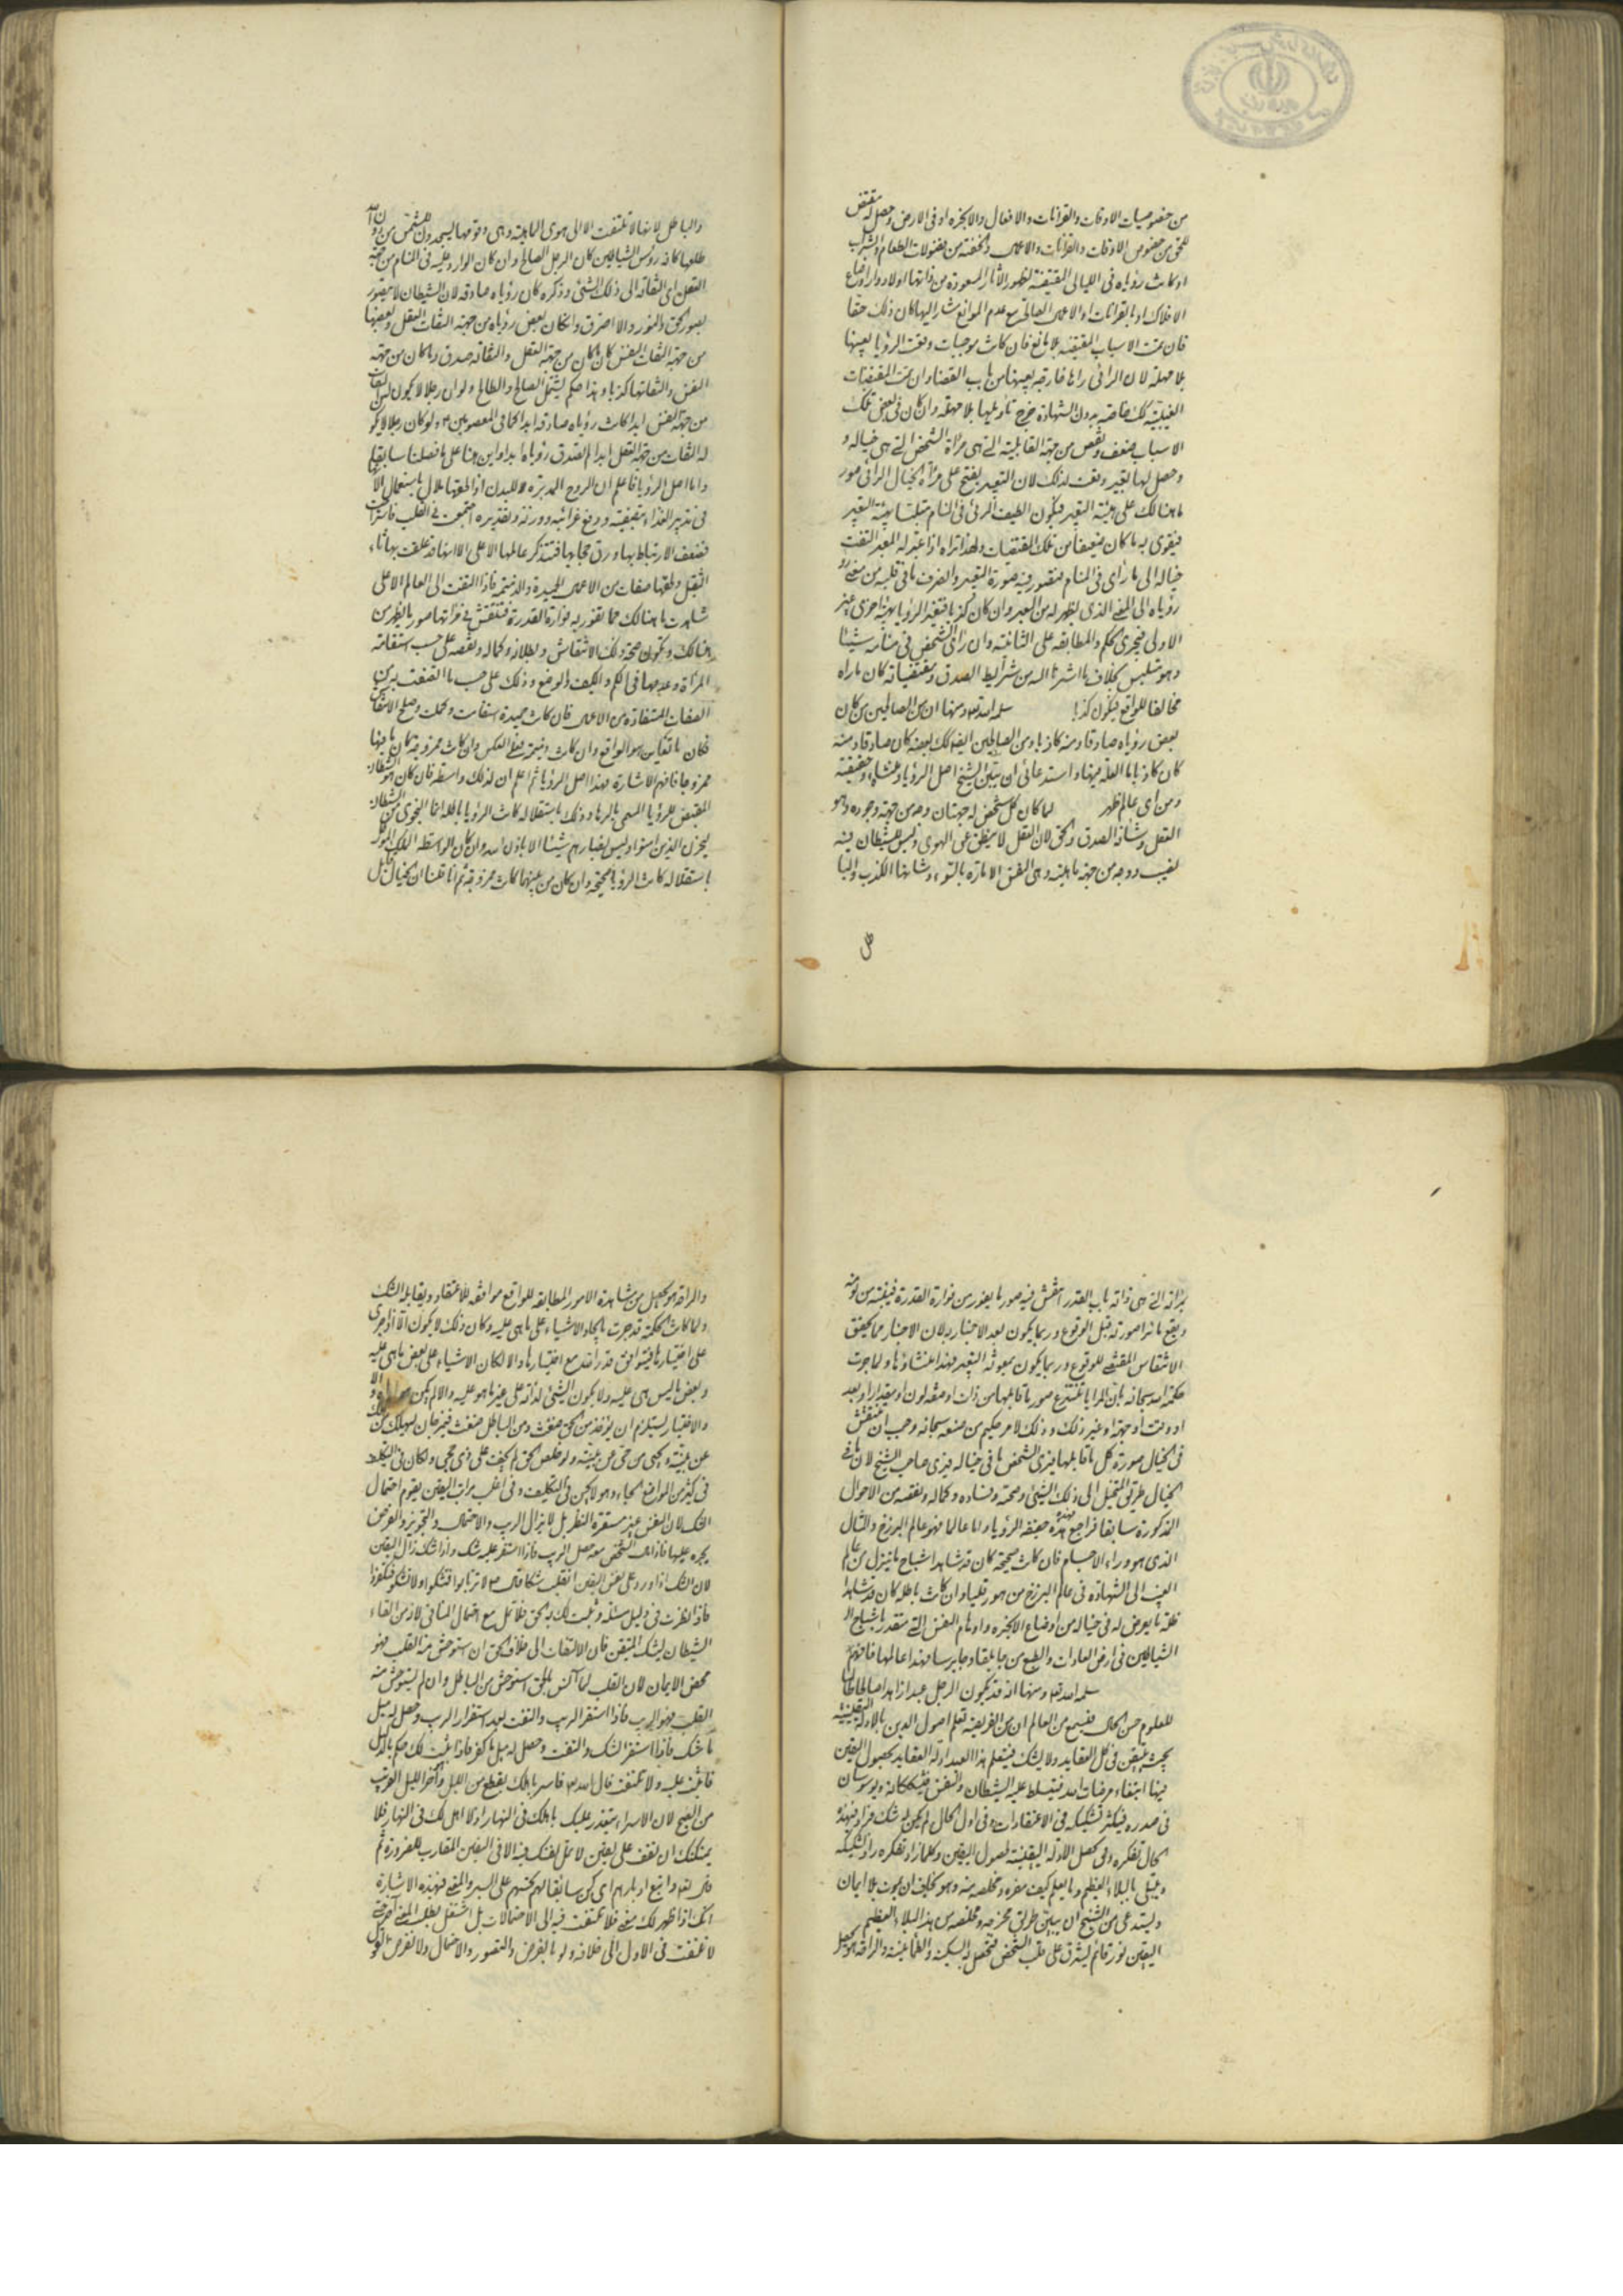 من خصوصيات الاوقات والقرانات والافعال والابخرة او فى الارض وحصل له مقتض
للحق من خصوص الاوقات والقرانات والاعمال والخفة من فضولات الطعام والشراب
او كانت رؤياه فى الليالى المقتضية لظهور الآثار المسعودة من ذاتها او لادوار اوضاع
الافلاك او بالقرانات او الاعمال الصالحة مع عدم الموانع مشار اليها كان ذلك حقا
فان تمت الاسباب المقتضية بلا مانع فان كانت موجبات وقعت الرؤيا بعينها
بلا مهلة لان الرائى راها خارجة بعينها من باب القضاء وان تمت المقتضيات
الغيبية خاصة بدون الشهادة خرج تأويلها بلا مهلة وان كان فى بعض تلك
الاسباب ضعف ونقص من جهة القابلية التى هى مرآة الشخص التى هى خياله و
وحصل لها تعبير وقعت لذلك لان التعبير يفتح على مرآة الخيال الرائى صور
ما هنالك على هيئة التعبير فيكون الطيف المرئى فى المنام متلبسا بهيئة التعبير
فيقوى به ما كان ضعيفا من تلك المقتضيات ولهذا تراه اذا عبر له المعبر التفت
خياله الى ما رأى فى المنام فتصور فيه صورة التعبير وانصرف ما فى قلبه من معنى
رؤياه الى المعنى الذى يظهر له من العبر وان كان كذبا فتغير الرؤيا بهيئة اخرى غير
الاولى فيجرى الحكم والمطابقة على الثانية وان رأى الشخص فى منامه شيئا
وهو متلبس بخلاف ما اشرنا اليه من شرايط الصدق ومقتضياته كان ما راه
مخالفا للواقع فيكون كذبا سلمه الله تع ومنها ان من الصالحين من كان
بعض رؤياه صادقا ومنه كاذبا ومن الطالحين ايضا كذلك بعضه كان صادقا ومنه
كان كاذبا ما العلة فيها واستدعائى ان يبين الشيخ اصل الرؤيا ومنشاءه وحقيقته
ومن اى عالم تظهر لما كان كل شخص له جهتان وجه من جهة وجوده وهو
العقل وشأنه الصدق والحق لان العقل لا ينطق عن الهوى وليس للشيطان فيه
نصيب ووجه من جهة ماهيته وهى النفس الامارة بالسوء وشأنها الكذب والبا
طل
والباطل لانها لا تلتفت الا الى هوى الماهية وهى وقومها يسجدون للشمس من دون الله
طلعها كانه رؤس الشياطين كان الرجل الصالح وان كان الوارد عليه فى المنام من جهة
العقل اى التفاته الى ذلك الشئ وذكره كان رؤياه صادقة لان الشيطان لا يتصور
بصور الحق والنور والا احترق وان كان بعض رؤياه من جهة التفات العقل وبعضها
من جهة التفات النفس كان ما كان من جهة العقل والتفاته صدق وما كان من جهة
النفس والتفاتها كذبا وهذا حكم يشمل الصالح والطالح ولو ان رجلا لا يكون له التفات
من جهة النفس ابدا كانت رؤياه صادقة ابدا كما فى المعصومين ع ولو كان رجلا لا يكون
له التفات من جهة العقل ابدا لم تصدق رؤياه ابدا واين هنا على ما فصلنا سابقا
واما اصل الرؤيا فاعلم ان الروح المدبرة للبدن اذا لحقها ملال باستعمال الآلات
فى تدبير الغذاء بتصفيته ودفع غرائبه ووزنه وتقديره اجتمعت فى القلب فاستراحت
فضعف الارتباط بها ورق حجابها فتتذكر عالمها الاعلى الا انها قد علقت بها اثار
الثقل ولحقها صفات من الاعمال الحميدة والذميمة فاذا التفتت الى العالم الاعلى
شاهدت ما هنالك مما تفور به فوارة القدرة فتنتقش فى مرآتها صور ما يظهر من
هنالك وتكون صحة ذلك الانتقاش وبطلانه وكماله ونقصه على حسب استقامة
المرآة وعدمها فى الكم والكيف والوضع وذلك على حسب ما اتصفت به من
الصفات المستفادة من الاعمال فان كانت حميدة استقامت وكملت وصلح الانتقاش
فكان ما تعاين هو الواقع وان كانت ذميمة فعلى العكس وان كانت ممزوجة كان ما فيها
ممزوجا فافهم الاشارة فهذا اصل الرؤيا ثم اعلم ان لذلك واسطة فان كان هو الشيطان
المقيض للرؤيا المسمى بالرها وذلك باستقلاله كانت الرؤيا باطلة انما النجوى من الشيطان
ليحزن الذين امنوا وليس بضارهم شيئا الا باذن الله وان كان الواسطة الملك الموكل
باستقلاله كانت الرؤيا صحيحة وان كان من بينهما كانت ممزوجة ثم انا قلنا ان الخيال بل
مرآته التى هى ذاته باب القدر انتقش فيه صور ما يفور من فوارة القدرة فيقبله من لونه
ويقع ما نزل صورته قبل الوقوع وربما يكون بعد الاخبار به لان الاخبار مما يحقق
الانتقاش المقتضى للوقوع وربما يكون بمعونة التعبير فهذا منشاؤها ولما جرت
حكمة الله سبحانه بان المرايا تنتزع صور ما قابلها من ذات او صفة لون او مقدار او بعد
او وقت او جهة او غير ذلك وذلك لامر حكيم من صنعه سبحانه وجب ان تنتقش
فى الخيال صورة كل ما قابلها فيرى الشخص ما فى خياله فيرى صاحب الشبح لان ما فى
الخيال طريق المتخيل الى ذلك الشئ وصحته وفساده وكماله ونقصه من الاحوال
المذكورة سابقا فراجع فهذه حقيقة الرؤيا واما عالمها فهو عالم البرزخ والمثال
الذى هو وراء الاجسام فان كانت صحيحة كان قد شاهد اشباح ما ينزل من عالم
الغيب الى الشهادة فى عالم البرزخ من هورقليا وان كانت باطلة كان قد شاهد
ظلة ما يعرض له فى خياله من اوضاع الابخرة واوهام النفس التى تتقدر باشباح
الشياطين فى ارض العادات والطبع من جابلقا وجابرسا فهذا عالمها فافهم
سلمه الله تع ومنها انه قد يكون الرجل عبدا زاهدا صالحا طالبا
للعلوم حسن الحال فيسمع من العالم ان من الفريضة تعلم اصول الدين بالادلة اليقينية
بحيث يتيقن فى كل العقايد ولا يشك فيتعلم هذا العبد ادلة العقايد لحصول اليقين
فيها ابتغاء مرضات الله فيتسلط عليه الشيطان والنفس فيشككانه ويوسوسان
فى صدره فيكثر تشكيكه فى الاعتقادات وفى اول الحال لم يكن له شك فزاد فهذه
الحال تفكره وفى تحصيل الادلة اليقينية لحصول اليقين وكلما زاد تفكره زاد تشكيكه
ويبتلى بالبلاء العظيم وما يعلم كيف مفره ومخلصه منه وهو يخاف ان يموت بلا ايمان
ويستدعى من الشيخ ان يبين طريق مخرجه ومخلصه من هذا البلاء العظيم
اليقين نور قائم يشرق على قلب الشخص فيحصل له السكينة والطمأنينة والراقة هو يحصل
والراقة هو يحصل من مشاهدة الامور المطابقة للواقع موافقة للاعتقاد ويقابله الشك
ولما كانت الحكمة قد جرت بايجاد الاشياء على ما هى عليه وكان ذلك لا يكون الا اذا جرى
على اختيارها فيتوافق قدر الله مع اختيارها والا لكان الاشياء على بعض ما هى عليه
وبعض ما ليس هى عليه ولا يكون الشئ لذاته على غير ما هو عليه والا لم يكن
والاختيار يستلزم ان يؤخذ من الحق ضغث ومن الباطل ضغث فيمزجان ليهلك من هلك
عن بينة ويحيى من حى عن بينة ولو خلص الحق لم يخف على ذى حجى ولكان فى التكليف
فى كثير من المواضع الجاء وهو لا يحسن فى التكليف وفى اغلب مراتب اليقين يقوم احتمال
الشك لان النفس غير مستقرة النظر بل لا يزال الريب والاحتمال والتجويز والفرض
يجرى عليها فاذا الشخص معه حصل الريب فاذا استقر عليه شك واذا شك زال اليقين
لان الشك اذا ورد على نفس اليقين انقلب شكا قال ع لا ترتابوا فتشكوا ولا تشكوا فتكفروا
فاذا نظرت فى دليل مسئلة وثبت لك به الحق فلا تمل مع احتمال المنافى لانه من القاء
الشيطان ليشك المتيقن فان الالتفات الى خلاف الحق ان استوحش منه القلب فهو
محض الايمان لان القلب لما آنس بالحق استوحش من الباطل وان لم يستوحش منه
القلب فهو الريب فاذا استقر الريب والتفت بعد استقرار الريب وحصل له ميل
ما شك فاذا استقر الشك والتفت وحصل له ميل ما كفر فاذا ثبت لك حكم بالدليل
فاثبت عليه ولا تلتفت قال الله تع فاسر باهلك بقطع من الليل وآخر الليل القريب
من الصبح لان الاسراء يتعذر عليك باهلك فى النهار اذ لا اهل لك فى النهار فلا
يمكنك ان تقف على يقين لا تمل نفسك فيه الا فى اليقين المقارب للضرورة ثم
قال تع واتبع ادبارهم اى كن سابقا لهم تحثهم على السير والمعنى فهذه الاشارة
انك اذا ظهر لك معنى فلا تلتفت فيه الى الاحتمالات بل اشتغل بطلب المعنى آخر حتى
لا تلتفت فى الاول الى خلافه ولو بالفرض والتصور والاحتمال ولا تفرض